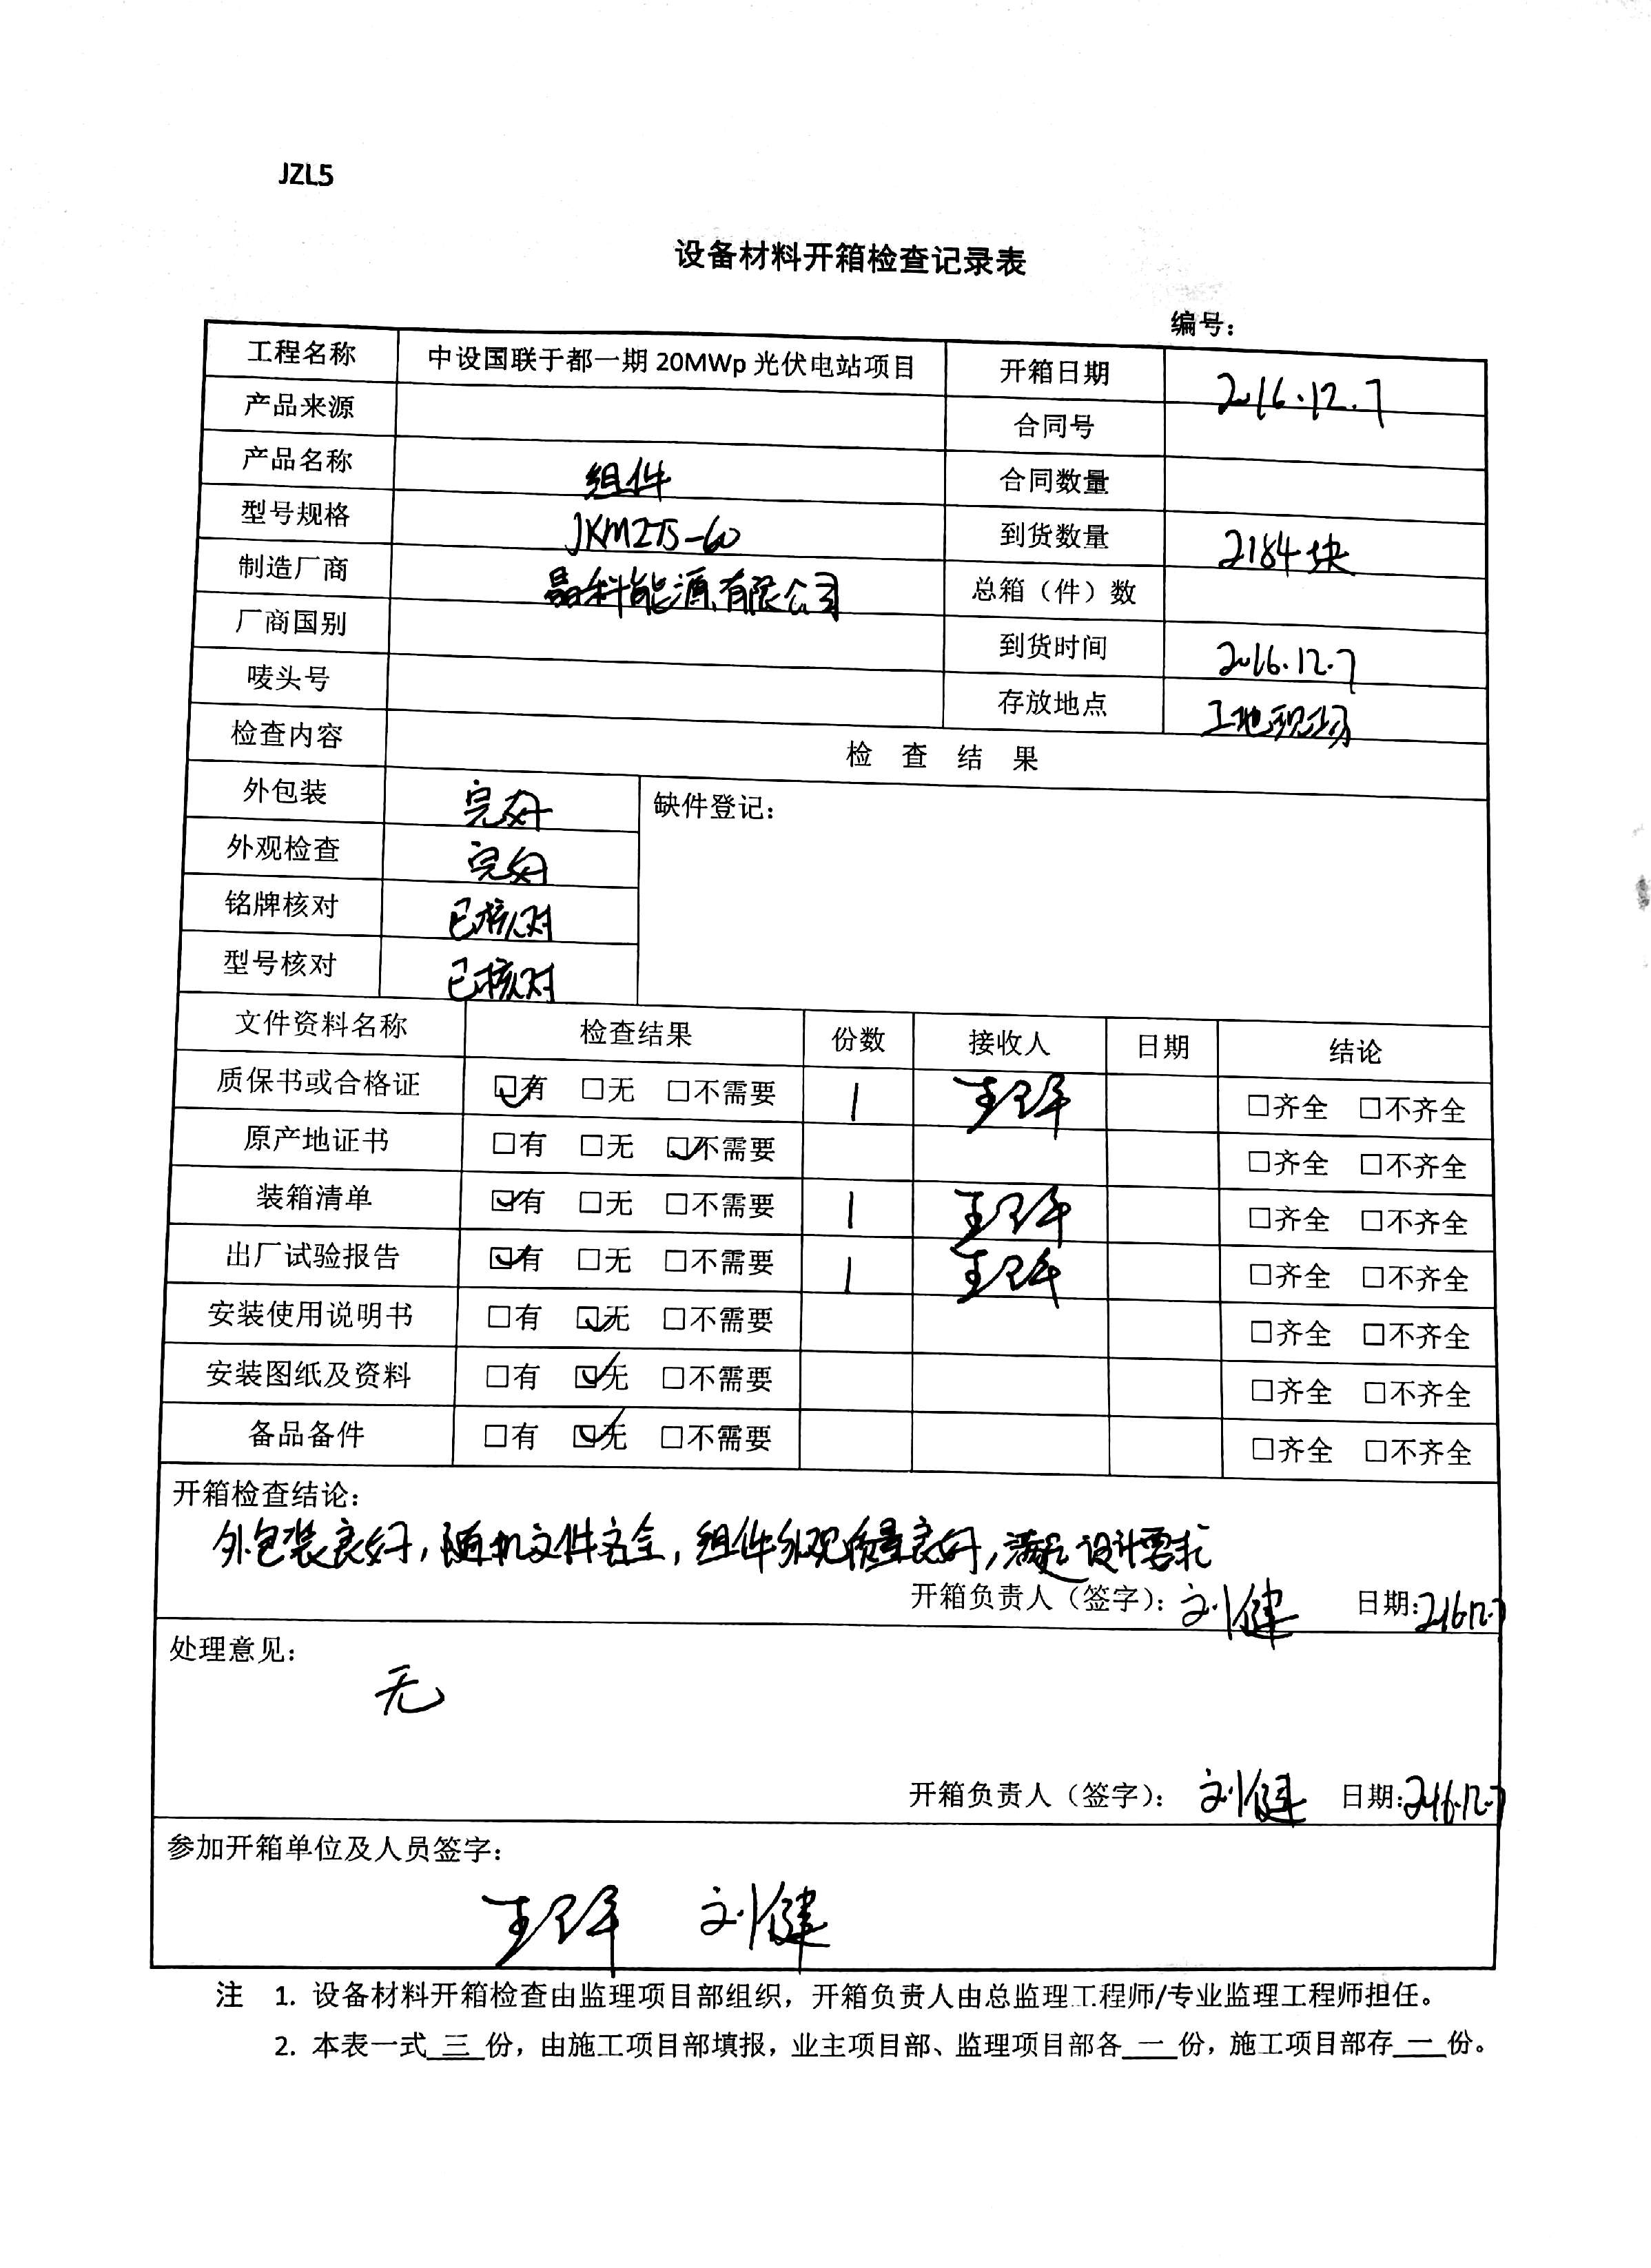 JZL5
设备材料开箱检查记录表
编号：
工程名称 中设国联于都一期 20MWp 光伏电站项目 开箱日期 2016.12.7
产品来源 合同号
产品名称 组件 合同数量
型号规格 JKM275-60 到货数量 2184块
制造厂商 晶科能源有限公司 总箱（件）数
厂商国别 到货时间 2016.12.7
唛头号 存放地点 工地现场
检查内容 检 查 结 果
外包装 完好 缺件登记：
外观检查 完好
铭牌核对 已核对
型号核对 已核对
文件资料名称 检查结果 份数 接收人 日期 结论
质保书或合格证 ☑有 □无 □不需要 1 □齐全 □不齐全
原产地证书 □有 □无 ☑不需要 □齐全 □不齐全
装箱清单 ☑有 □无 □不需要 1 □齐全 □不齐全
出厂试验报告 ☑有 □无 □不需要 1 □齐全 □不齐全
安装使用说明书 □有 ☑无 □不需要 □齐全 □不齐全
安装图纸及资料 □有 ☑无 □不需要 □齐全 □不齐全
备品备件 □有 ☑无 □不需要 □齐全 □不齐全
开箱检查结论：
外包装良好，随机文件齐全，组件外观质量良好，满足设计要求
开箱负责人（签字）：刘健 日期：2016.12.7
处理意见：
无
开箱负责人（签字）：刘健 日期：2016.12.7
参加开箱单位及人员签字：
刘健
注 1. 设备材料开箱检查由监理项目部组织，开箱负责人由总监理工程师/专业监理工程师担任。
2. 本表一式 三 份，由施工项目部填报，业主项目部、监理项目部各 一 份，施工项目部存 一 份。